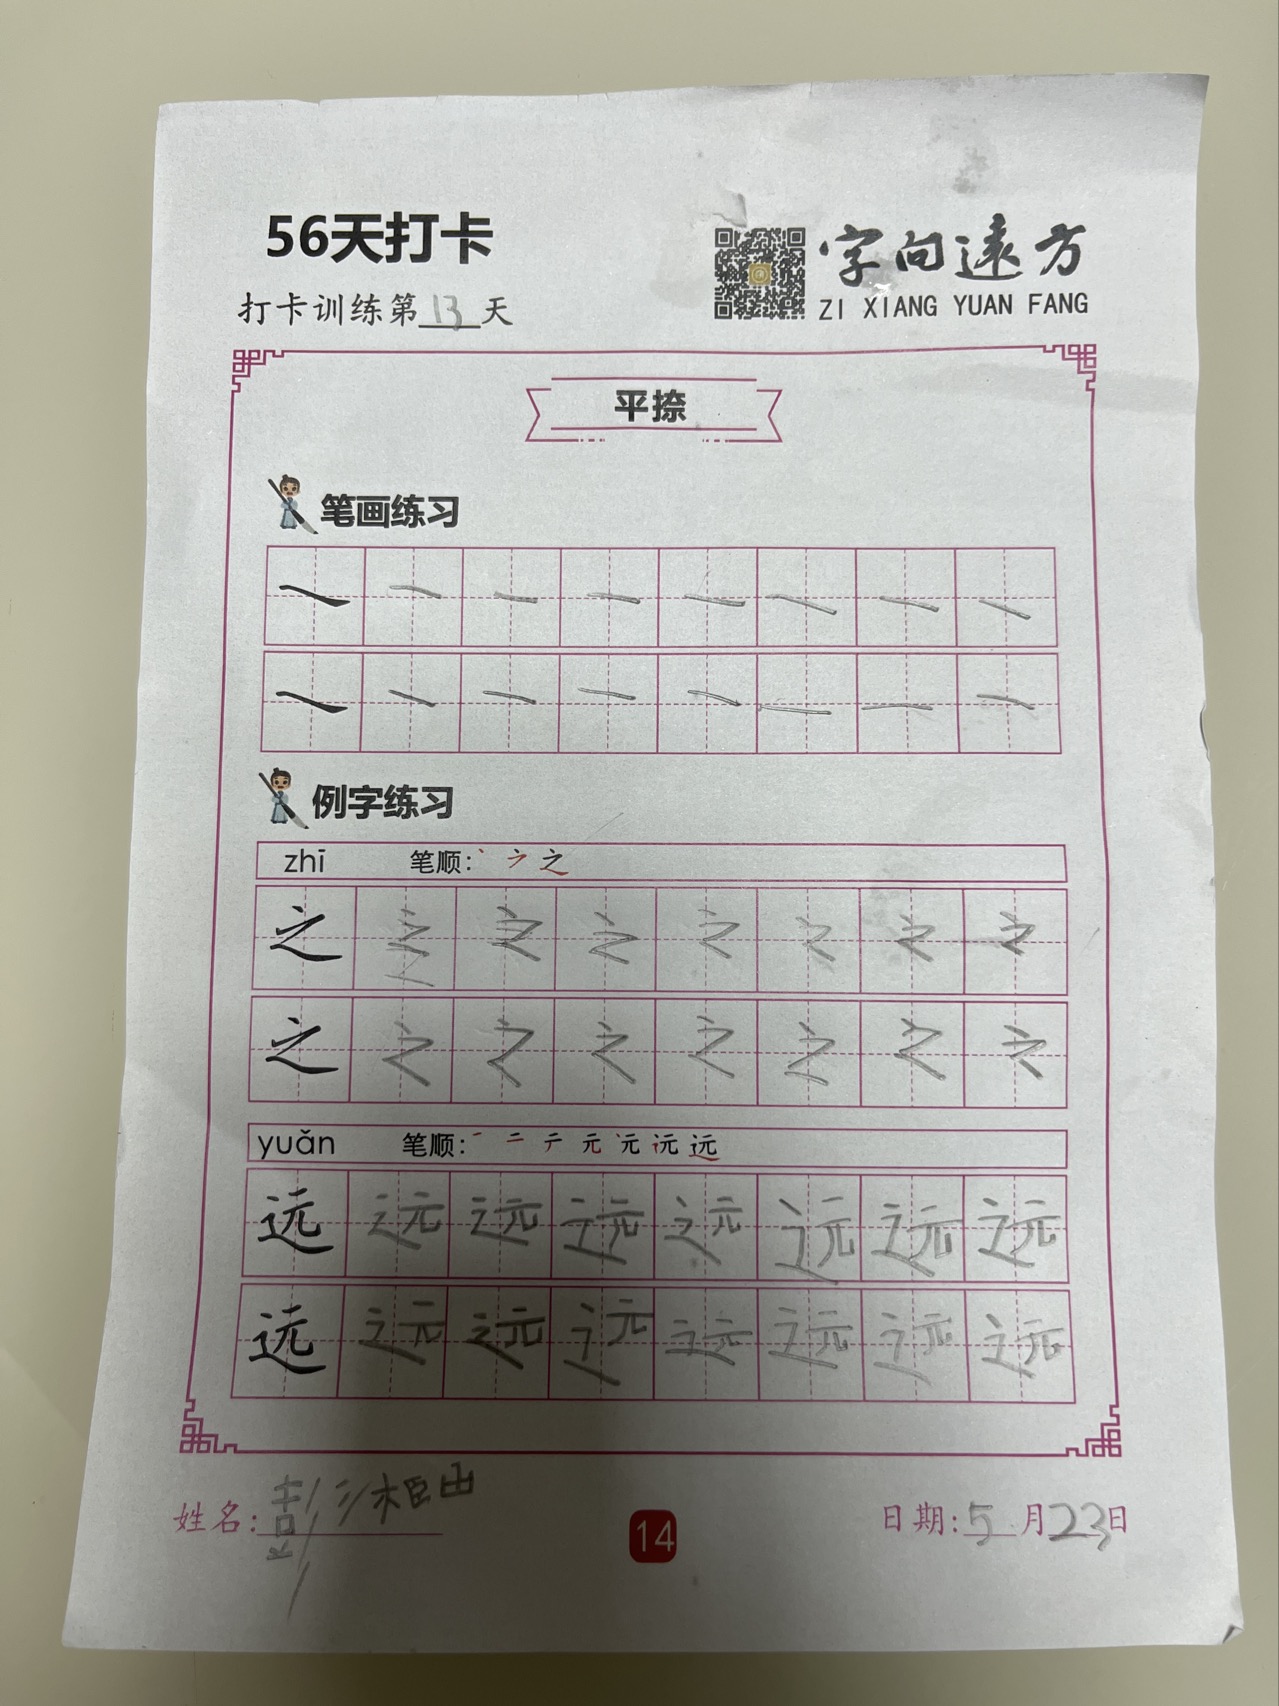 56天打卡
字向远方
ZI XIANG YUAN FANG
打卡训练第13天
平捺
笔画练习
例字练习
zhī 笔顺: 丶 ㇇ 之
之 之 之 之 之 之 之 之
之 之 之 之 之 之 之 之
yuǎn 笔顺: 一 二 テ 元 远
远 远 远 远 远 远 远 远
远 远 远 远 远 远 远 远
姓名:彭
14
日期:5月23日